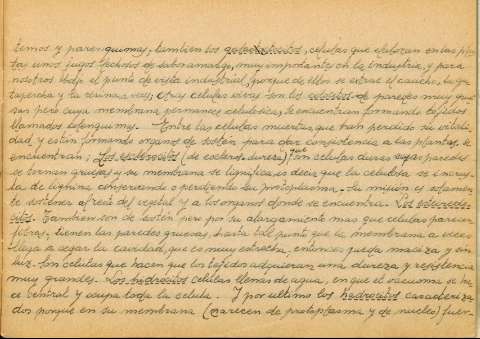 temos y parenquimas, tambien los galactocitos, celulas que elaboran en las plan
tas unos jugos lechosos de sabor amargo, muy importantes en la industria, y para
nosotros bajo el punto de vista industrial, porque de ellos se extrae el caucho, la gu
tapercha y la resina, etc. Otras celulas vivas son los colocitos de paredes muy grue
sas pero cuya membrana permanece celulosica, se encuentran formando tejidos
llamados colenquimas. — Entre las celulas muertas, que han perdido su vitali
dad y estan formando organos de sostén para dar consistencia a las plantas, se
encuentran; Los esclerocitos (de escleros, dureza) que son celulas duras cuyas paredes
se tornan gruesas y su membrana se lignifica, es decir que la celulosa se incrus
ta de lignina, compareciendo o perdiendo su protoplasma. Su mision es solamen
te sostener al resto del vegetal y a los organos donde se encuentra. Los
Tambien son de sostén pero por su alargamiento mas que celulas parecen
fibras, tienen las paredes gruesas, hasta tal punto que la membrana a veces
llega a cegar la cavidad, que es muy estrecha, entonces queda maciza y sin
luz. Son celulas que hacen que los tejidos adquieran una dureza y resistencia
muy grandes. Los hidrocitos celulas llenas de agua, en que el vacuoma se ha
ce central y ocupa toda la celula. Y por ultimo los hadrocitos caracteriza
dos porque en su membrana (carecen de protoplasma y de nucleo) fuer-